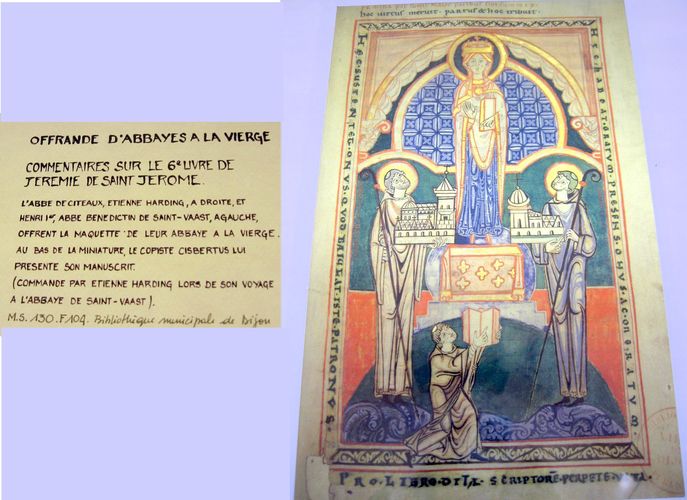 OFFRANDE D'ABBAYES A LA VIERGE
COMMENTAIRES SUR LE 6e LIVRE DE
JEREMIE DE SAINT JEROME.
L'ABBE DE CITEAUX, ETIENNE HARDING, A DROITE, ET
HENRI 1er, ABBE BENEDICTIN DE SAINT-VAAST, A GAUCHE,
OFFRENT LA MAQUETTE DE LEUR ABBAYE A LA VIERGE.
AU BAS DE LA MINIATURE, LE COPISTE OISBERTUS LUI
PRESENTE SON MANUSCRIT.
(COMMANDE PAR ETIENNE HARDING LORS DE SON VOYAGE
A L'ABBAYE DE SAINT-VAAST).
M.S. 130. F.104. Bibliothèque municipale de Dijon
hoc virtus meruit. partus hoc tribuit.
PRO LIBRO DITA SCRIPTORE PERPETE VITA.